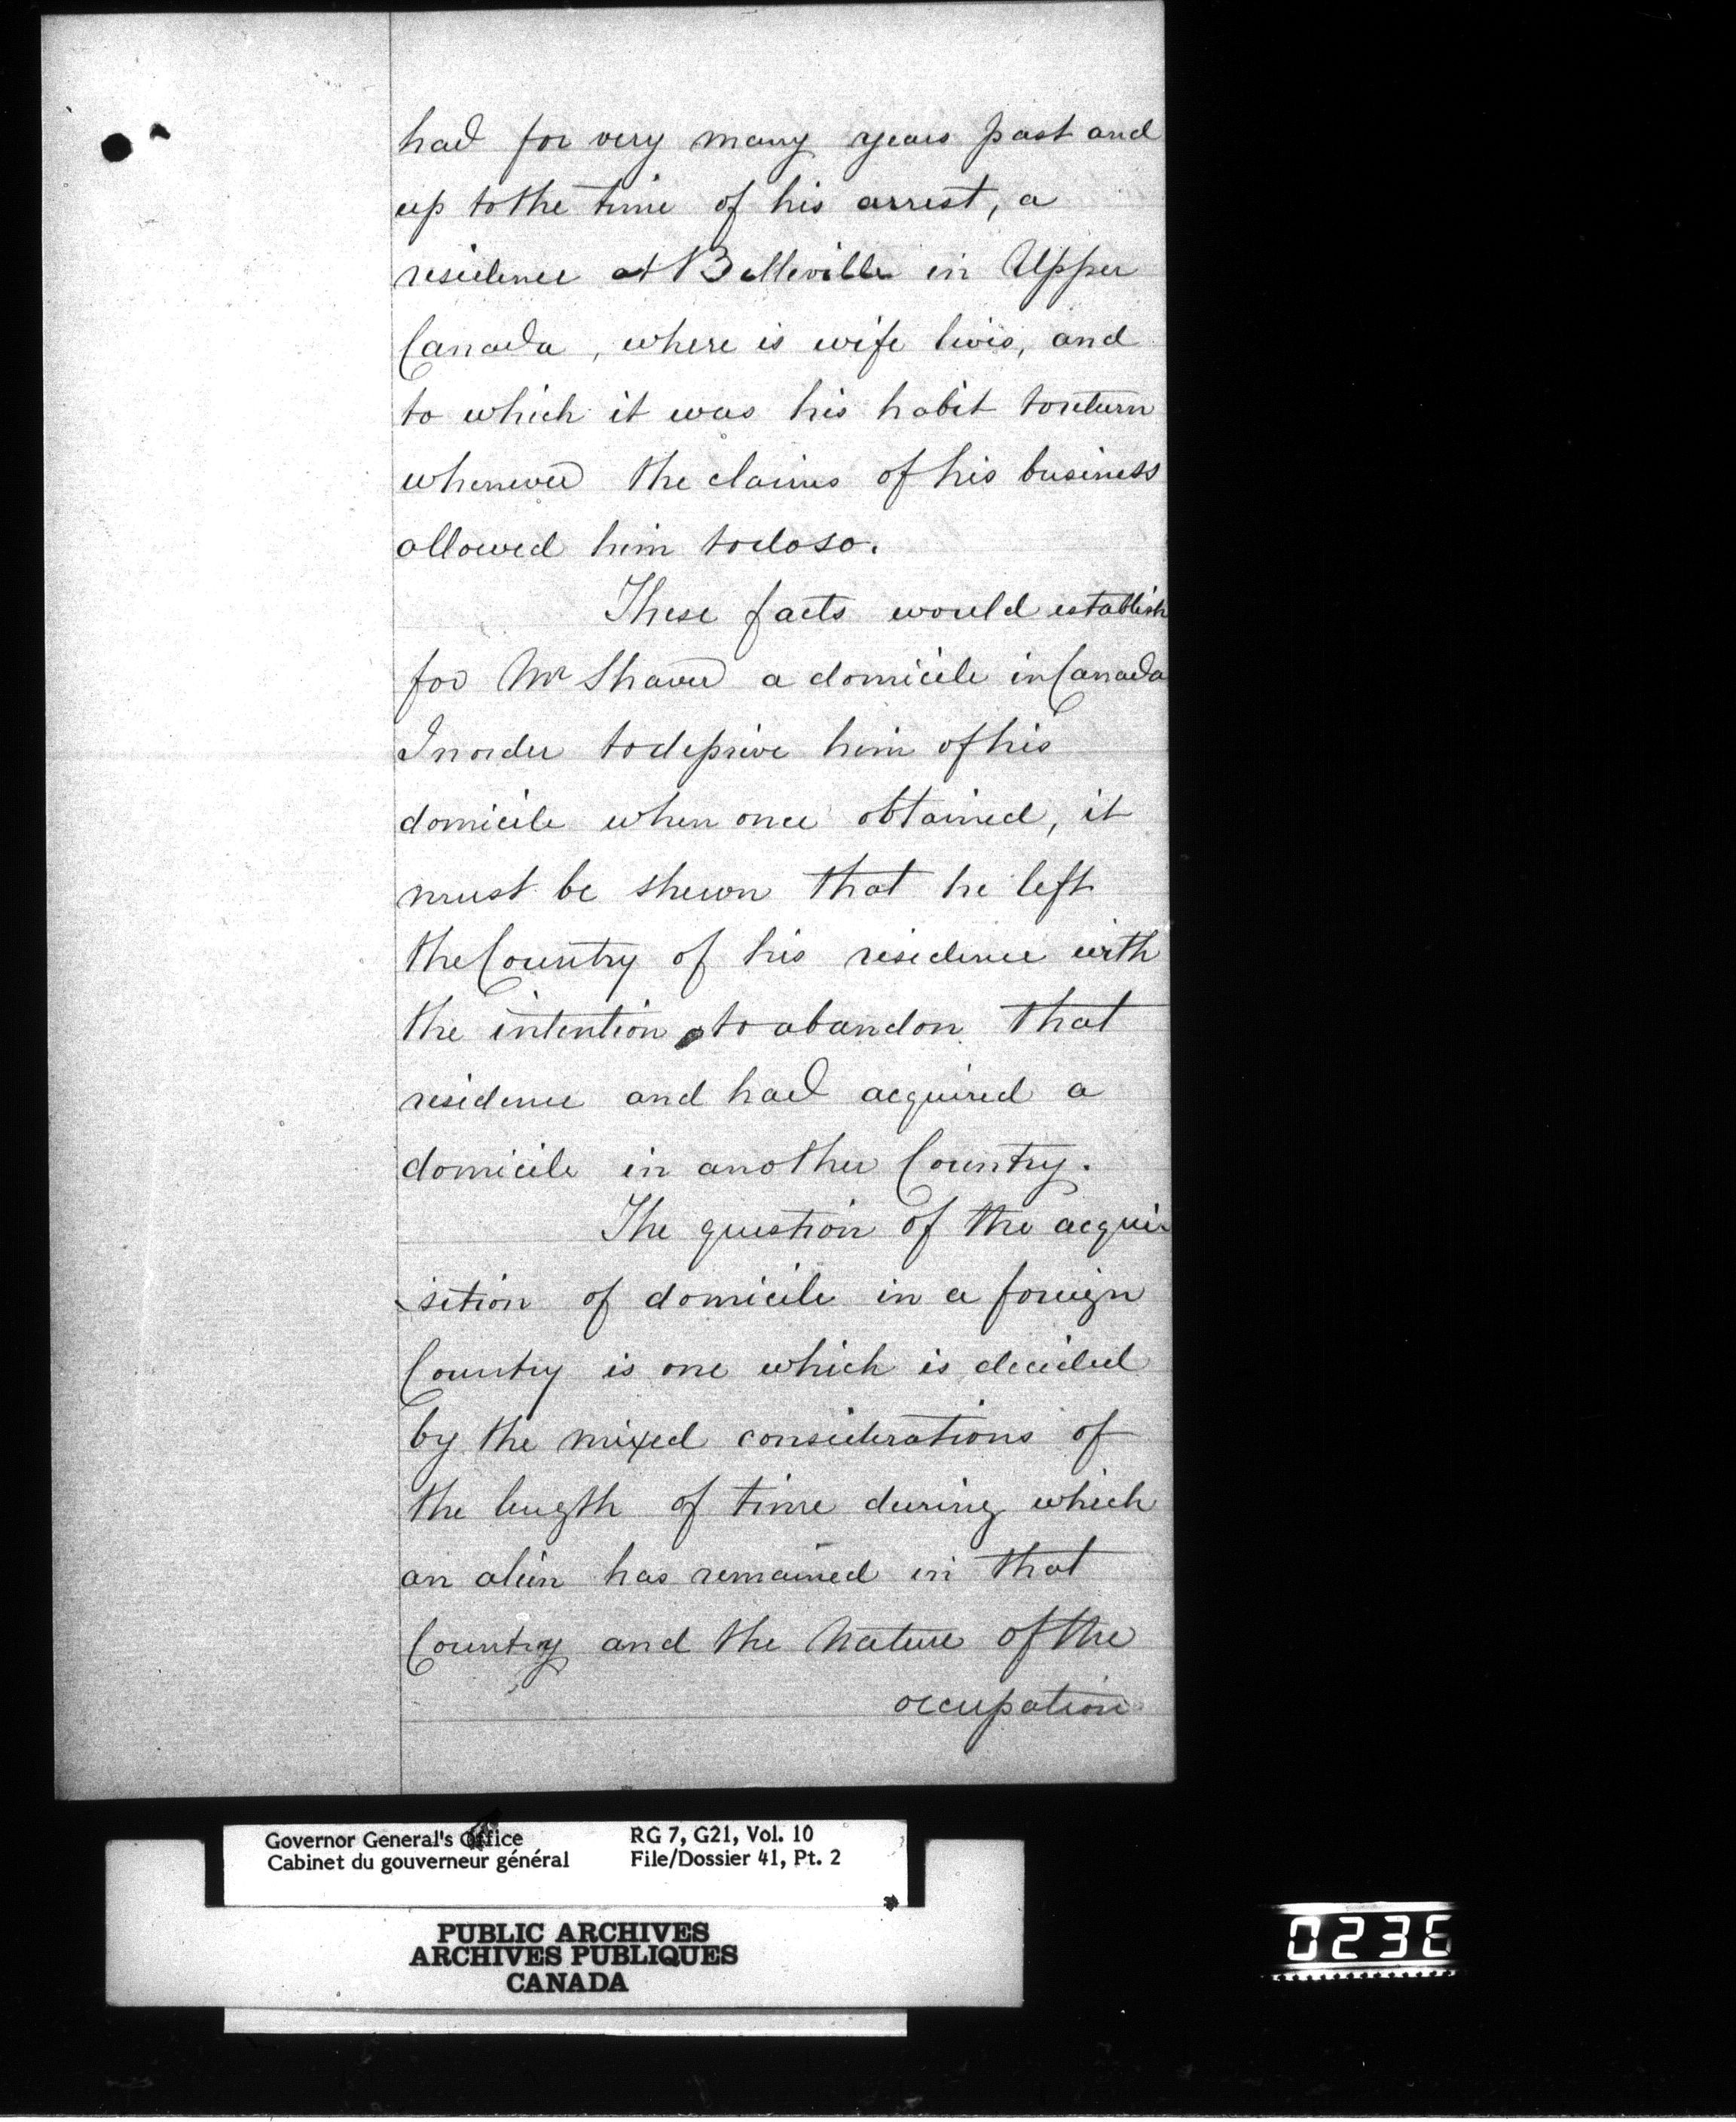 had for very many years past and
up to the time of his arrest, a
residence at Belleville in Upper
Canada, where is wife lives, and
to which it was his habit to return
whenever the claims of his business
allowed him to do so.
These facts would establish
for Mr Shaver a domicile in Canada
In order to deprive him of his
domicile when once obtained, it
must be shewn that he left
the Country of his residence with
the intention to abandon that
residence and had acquired a
domicile in another Country.
The question of the acqui
sition of domicile in a foreign
Country is one which is decided
by the mixed considerations of
the length of time during which
an alien has remained in that
Country and the Nature of the
occupation
Governor General's Office RG 7, G21, Vol. 10
Cabinet du gouverneur général File/Dossier 41, Pt. 2
PUBLIC ARCHIVES
ARCHIVES PUBLIQUES
CANADA
0236